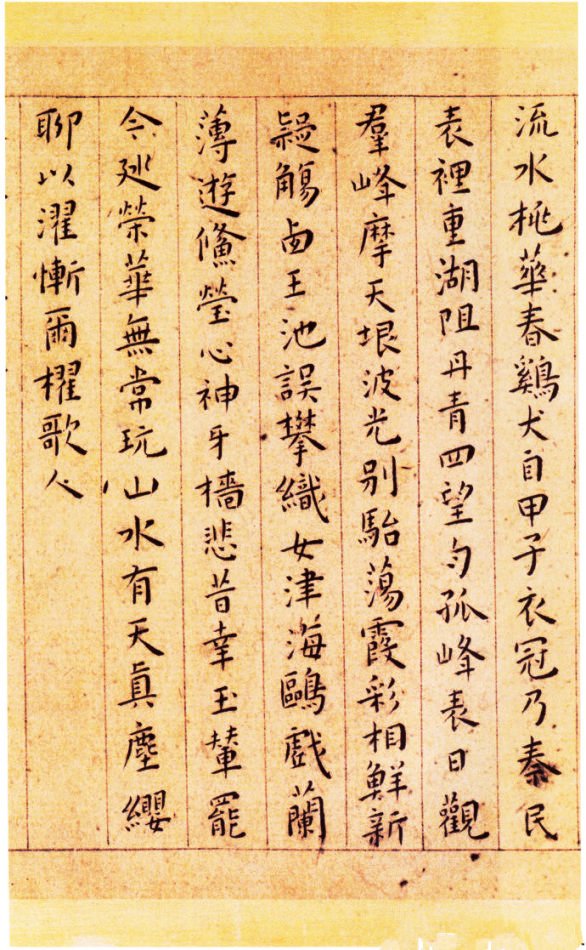 流水桃華春鷄犬自甲子衣冠乃秦民
表裡重湖阻丹青四望勻孤峰表日觀
羣峰摩天垠波光別駘蕩霞彩相鮮新
疑觴西王池誤攀織女津海鷗戲蘭
薄遊鯈瑩心神牙檣悲昔幸玉輦罷
今廵榮華無常玩山水有天眞塵纓
聊以濯慚爾櫂歌人